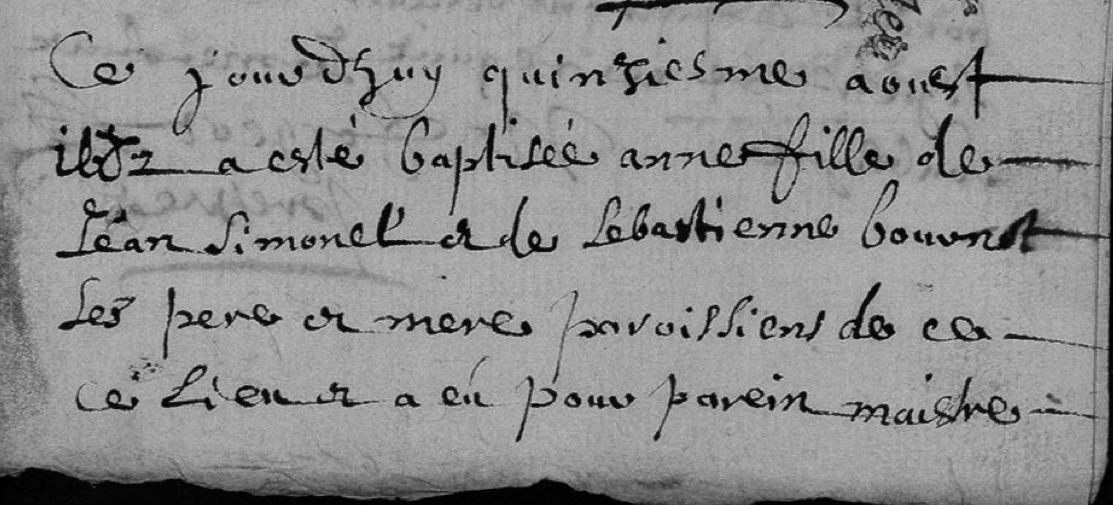 Ce jourdhuy quinziesme aoust
a esté baptisée anne fille de
Jean Simonel et de Sebastienne
Ses pere et mere paroissiens de ce
ce Lieu et a eu pour parein maistre